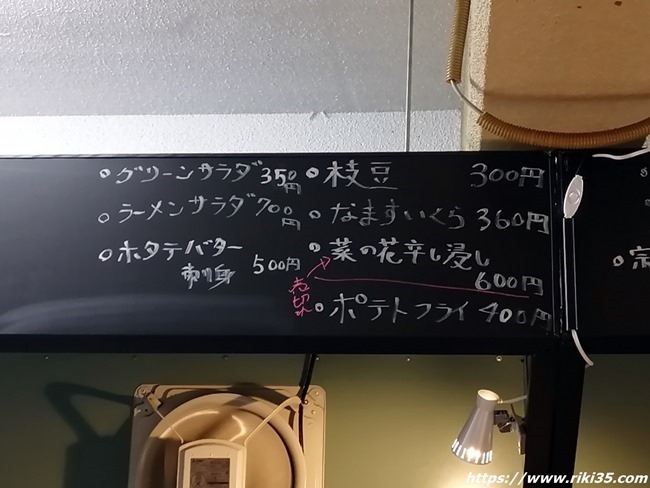 グリーンサラダ 350円
ラーメンサラダ 700円
ホタテバター
刺身 500円
枝豆 300円
なますいくら 360円
菜の花辛し浸し
600円
売切
ポテトフライ 400円
https://www.riki35.com